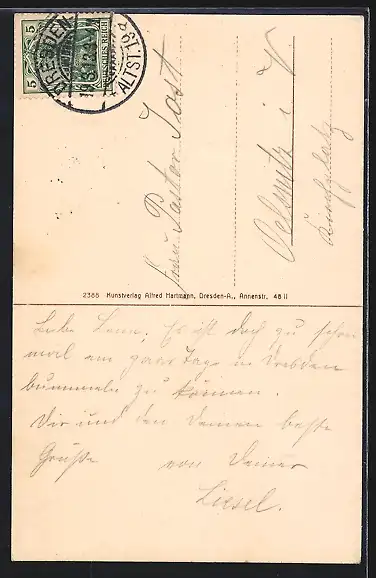 5
5
DEUTSCHES REICH
DRESDEN
ALTST.
Frau Pastor Jost
Oelsnitz i. V.
Kirchplatz
2388 Kunstverlag Alfred Hartmann, Dresden-A., Annenstr. 48 II
Liebe Lena, Es ist doch zu schön
mal ein paar Tage in Dresden
bummeln zu können.
Dir und den Deinen beste
Grüße von Deiner
Liesel.